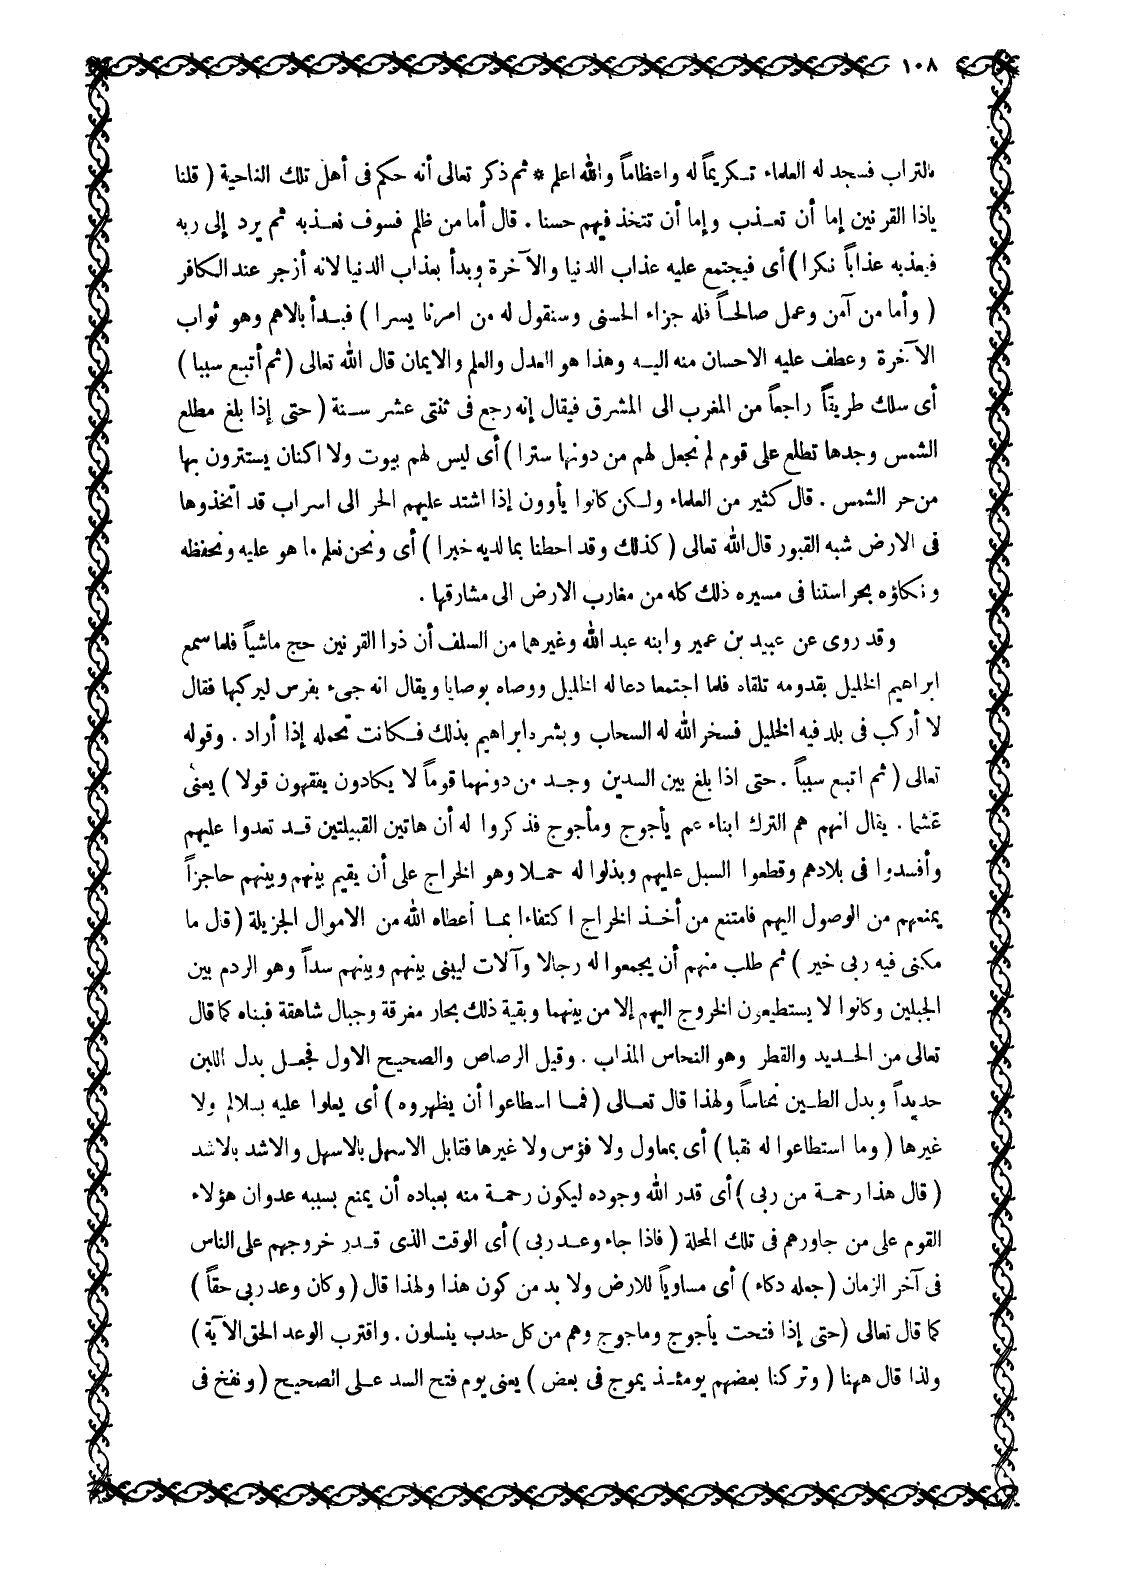 ١٠٨
بالتراب فسجد له العلماء تـكريماً له واعظاماً والله اعلم * ثم ذكر تعالى أنه حكم فى أهل تلك الناحية ( قلنا
ياذا القرنين إما أن تعـذب وإما أن تتخذ فيهم حسنا . قال أما من ظلم فسوف نعـذبه ثم يرد إلى ربه
فيعذبه عذاباً نكرا ) أى فيجتمع عليه عذاب الدنيا والآخرة وبدأ بعذاب الدنيا لانه أزجر عند الكافر
( وأما من آمن وعمل صالحـاً فله جزاء الحسنى وسنقول له من امرنا يسرا ) فبـدأ بالاهم وهو ثواب
الآخرة وعطف عليه الاحسان منه اليـه وهذا هو العدل والعلم والايمان قال الله تعالى ( ثم أتبع سببا )
أى سلك طريقاً راجعاً من المغرب الى المشرق فيقال إنه رجع فى ثنتى عشر سـنة ( حتى إذا بلغ مطلع
الشمس وجدها تطلع على قوم لم نجعل لهم من دونها سترا ) أى ليس لهم بيوت ولا اكنان يستترون بها
من حر الشمس . قال كثير من العلماء ولـكن كانوا يأوون إذا اشتد عليهم الحر الى اسراب قد اتخذوها
فى الارض شبه القبور قال الله تعالى ( كذلك وقد احطنا بما لديه خبرا ) أى ونحن نعلم ما هو عليه ونحفظه
ونكلؤه بحراستنا فى مسيره ذلك كله من مغارب الارض الى مشارقها .
وقد روى عن عبيد بن عمير وابنه عبد الله وغيرهما من السلف أن ذوا القرنين حج ماشياً فلما سمع
ابراهيم الخليل بقدومه تلقاه فلما اجتمعا دعا له الخليل ووصاه بوصايا ويقال انه جىء بفرس ليركبها فقال
لا أركب فى بلد فيه الخليل فسخر الله له السحاب وبشره ابراهيم بذلك فـكانت تحمله إذا أراد . وقوله
تعالى ( ثم اتبع سبباً . حتى اذا بلغ بين السدين وجـد من دونهما قوماً لا يكادون يفقهون قولا ) يعنى
غشما . يقال انهم هم الترك ابناء عم يأجوج ومأجوج فذكروا له أن هاتين القبيلتين قـد تعدوا عليهم
وأفسدوا فى بلادهم وقطعوا السبل عليهم وبذلوا له حمـلا وهو الخراج على أن يقيم بينهم وبينهم حاجزاً
يمنعهم من الوصول اليهم فامتنع من أخـذ الخراج اكتفاءا بمـا أعطاه الله من الاموال الجزيلة ( قال ما
مكنى فيه ربى خير ) ثم طلب منهم أن يجمعوا له رجالا وآلات ليبنى بينهم وبينهم سداً وهو الردم بين
الجبلين وكانوا لا يستطيعون الخروج اليهم إلا من بينهما وبقية ذلك بحار مغرقة وجبال شاهقة فبناه كما قال
تعالى من الحـديد والقطر وهو النحاس المذاب . وقيل الرصاص والصحيح الاول فجعـل بدل اللبن
حديداً وبدل الطـين نحاساً ولهذا قال تعـالى ( فمـا اسطاعوا أن يظهروه ) أى يعلوا عليه بسلالم ولا
غيرها ( وما استطاعوا له نقبا ) أى بمعاول ولا فؤس ولا غيرها فقابل الاسهل بالاسهل والاشد بالاشد
( قال هذا رحمـة من ربى ) أى قدر الله وجوده ليكون رحمـة منه بعباده أن يمنع بسببه عدوان هؤلاء
القوم على من جاورهم فى تلك المحلة ( فاذا جاء وعـد ربى ) أى الوقت الذى قـدر خروجهم على الناس
فى آخر الزمان ( جعله دكاء ) أى مساوياً للارض ولا بد من كون هذا ولهذا قال ( وكان وعد ربى حقاً )
كما قال تعالى ( حتى إذا فتحت يأجوج وماجوج وهم من كل حدب ينسلون . واقترب الوعد الحق الآية )
ولذا قال ههنا ( وتركنا بعضهم يومئـذ يموج فى بعض ) يعنى يوم فتح السد عـلى الصحيح ( ونفخ فى